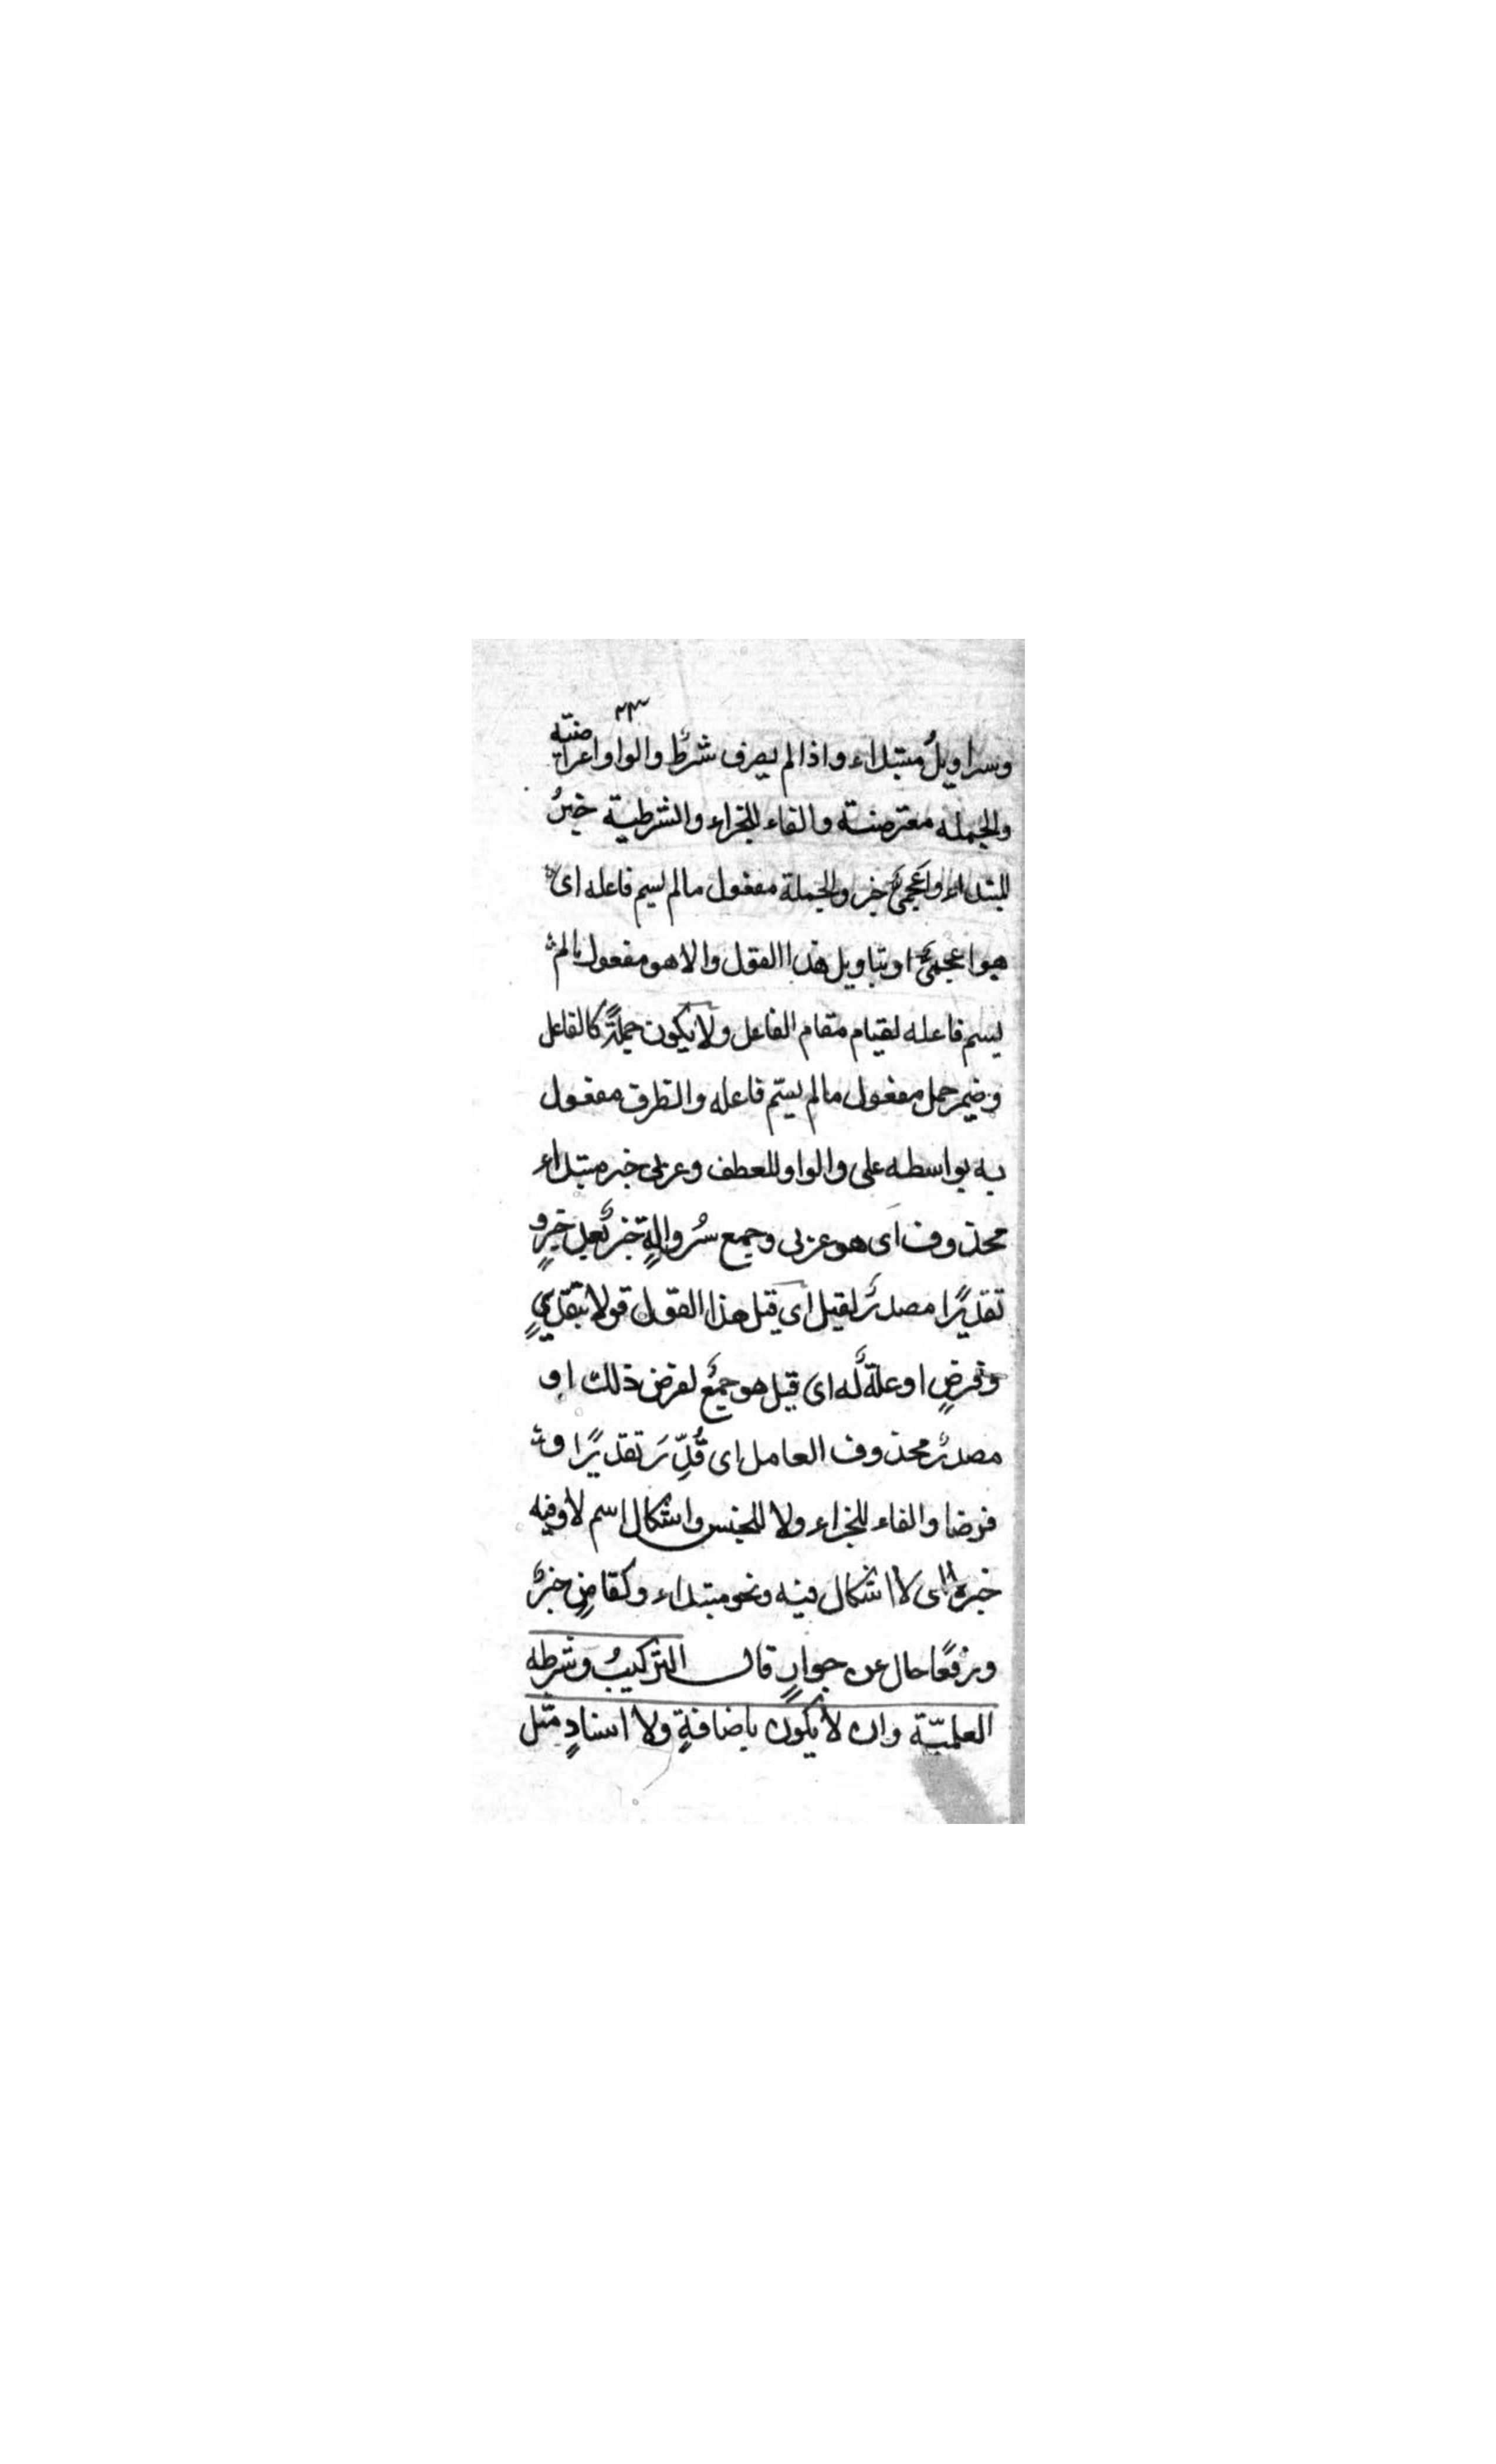 ٢٣
وسراويلُ مبتداء واذا لم يصرف شرطٌ والواو اعراضيّه
والجمله معترضته والفاء للجزاء والشرطية خبرُ
المبتداء واعجمىٌ خبر والجملة مفعول مالم يسم فاعله اى
هو اعجمىٌ او بتاويل هذا القول والا هو مفعول مالم
يسم فاعله لقيام مقام الفاعل ولا يكون جملةً كالفاعل
وضمير حمل مفعول مالم يسمّ فاعله والظرف مفعول
به بواسطه على والواو للعطف وعربى خبر مبتداء
محذوف اى هو عربى وجمع سُروالةٍ خبر بعد خبرٍ و
تقديرًا مصدرٌ لقيل اى قيل هذا القول قولا بتقديرٍ
وفرضٍ او علةٌ له اى قيل هو جمعٌ لفرض ذلك او
مصدرٌ محذوف العامل اى قُدِّرَ تقديرًا و
فرضا والفاء للجزاء ولا للجنس واشكال اسم لا وفيه
خبره اى لا اشكال فيه ونحو مبتداء وكقاضٍ خبرٌ
ورفعًا حال عن جوارٍ قال التركيبُ وشرطه
العلميّة وان لا يكون باضافةٍ ولا اسنادٍ مثل